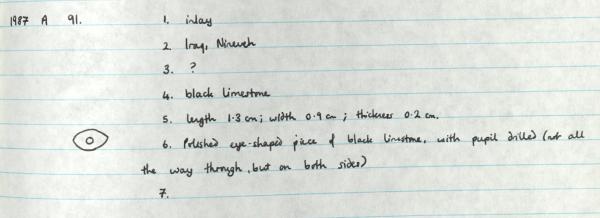 1987 A 91. 1. inlay
2. Iraq, Nineveh
3. ?
4. black limestone
5. length 1.3 cm; width 0.9 cm; thickness 0.2 cm.
6. Polished eye-shaped piece of black limestone, with pupil drilled (not all
the way through, but on both sides)
7.